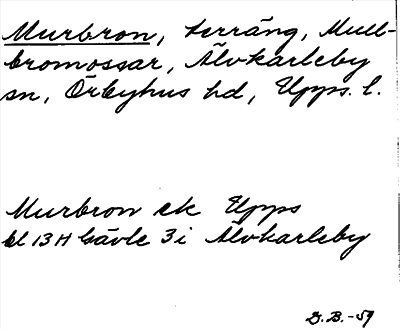 Murbron, terräng, Mull-
bromossar, Älvkarleby
sn, Örbyhus hd, Upps. l.
Murbron ek Upps
bl 13H Gävle 3i Älvkarleby
D.B.-59